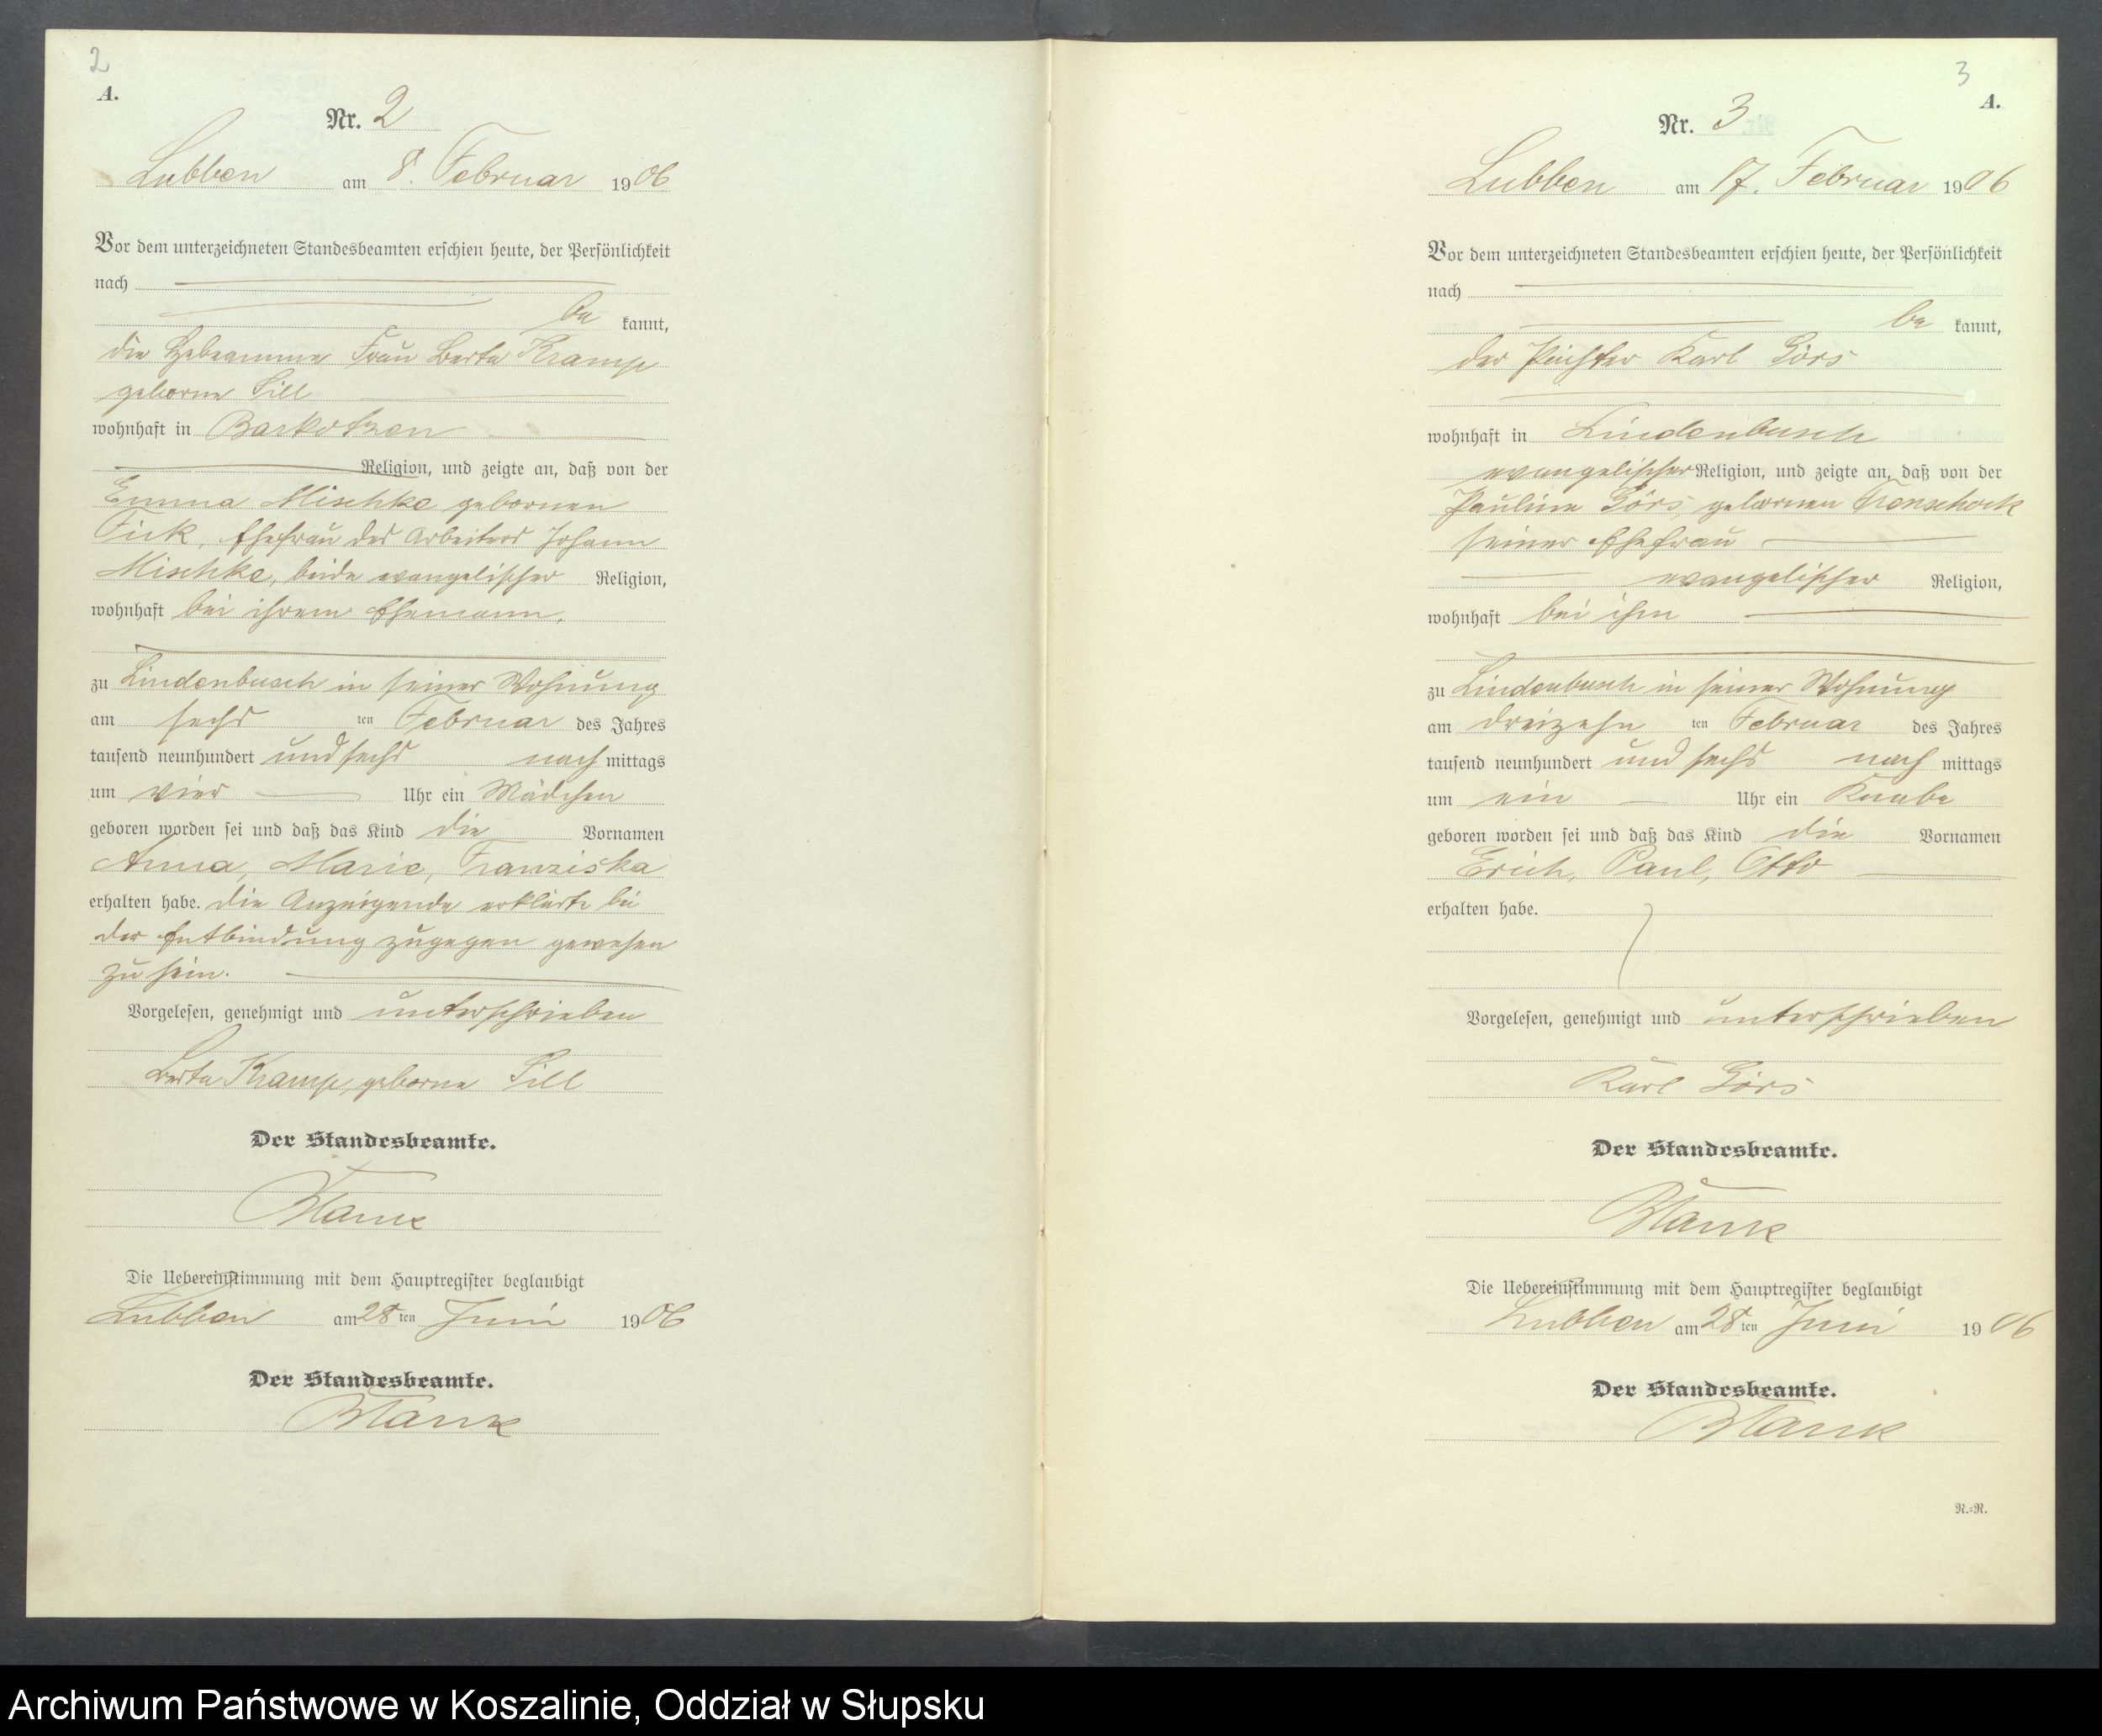 2
A.
Nr. 2
Lubben am 8. Februar 1906
Vor dem unterzeichneten Standesbeamten erschien heute, der Persönlichkeit
nach
be kannt,
die Hebeamme Frau Berta Kramp
geborne Sill
wohnhaft in Barkotzen
Religion, und zeigte an, daß von der
Emma Mischke gebornen
Fick, Ehefrau des Arbeiters Johann
Mischke, beide evangelischer Religion,
wohnhaft bei ihrem Ehemann,
zu Lindenbusch in seiner Wohnung
am sechs ten Februar des Jahres
tausend neunhundert und sechs nach mittags
um vier Uhr ein Mädchen
geboren worden sei und daß das Kind die Vornamen
Anna, Marie, Franziska
erhalten habe. Die Anzeigende erklärte bei
der Entbindung zugegen gewesen
zu sein.
Vorgelesen, genehmigt und unterschrieben
Berta Kramp, geborne Sill
Der Standesbeamte.
Die Uebereinstimmung mit dem Hauptregister beglaubigt
Lubben am 28ten Juni 1906
Der Standesbeamte.
3
A.
Nr. 3
Lubben am 17. Februar 1906
Vor dem unterzeichneten Standesbeamten erschien heute, der Persönlichkeit
nach
be kannt,
der Pächter Karl Görs
wohnhaft in Lindenbusch
evangelischer Religion, und zeigte an, daß von der
Pauline Görs, gebornen
seiner Ehefrau
evangelischer Religion,
wohnhaft bei ihm
zu Lindenbusch in seiner Wohnung
am dreizehn ten Februar des Jahres
tausend neunhundert und sechs nach mittags
um ein Uhr ein Knabe
geboren worden sei und daß das Kind die Vornamen
Erich, Paul, Otto
erhalten habe.
Vorgelesen, genehmigt und unterschrieben
Karl Görs
Der Standesbeamte.
Die Uebereinstimmung mit dem Hauptregister beglaubigt
Lubben am 28ten Juni 1906
Der Standesbeamte.
R.=R.
Archiwum Państwowe w Koszalinie, Oddział w Słupsku